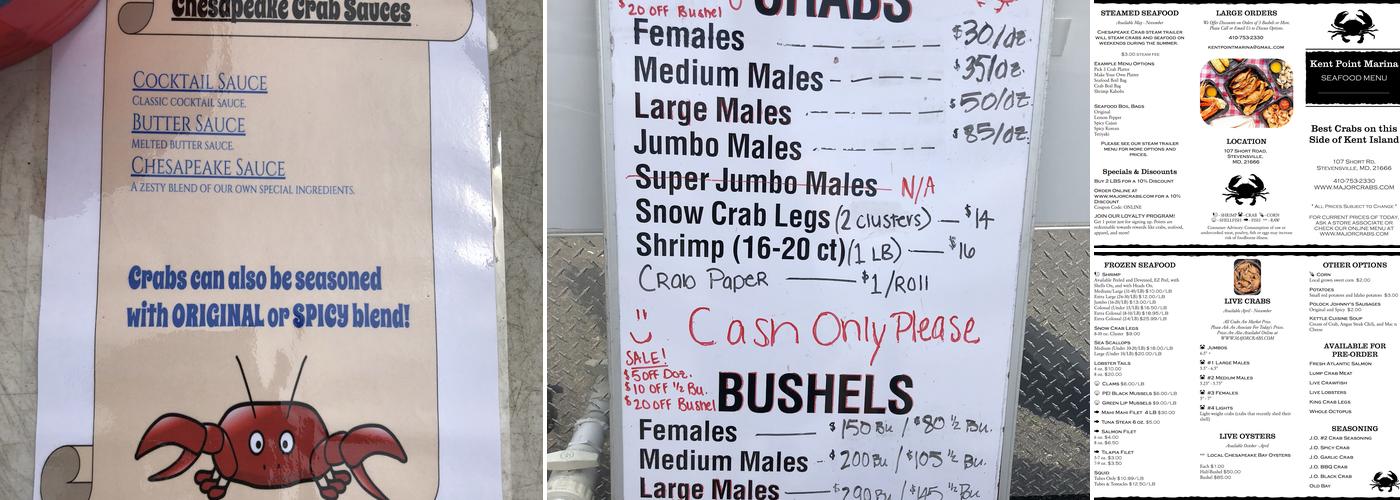 Chesapeake Crab Sauces
Cocktail Sauce
Classic cocktail sauce.
Butter Sauce
Melted butter sauce.
Chesapeake Sauce
A zesty blend of our own special ingredients.
Crabs can also be seasoned
with ORIGINAL or SPICY blend!
$20 OFF Bushel
CRABS
Females $30/dz.
Medium Males $35/dz.
Large Males $50/dz.
Jumbo Males $85/dz.
Super Jumbo Males N/A
Snow Crab Legs (2 clusters) — $14
Shrimp (16-20 ct) (1 LB) — $16
Crab Paper — $1/Roll
Cash Only Please
SALE!
$5 OFF Doz.
$10 OFF 1/2 Bu.
$20 OFF Bushel
BUSHELS
Females — $150 Bu / $80 1/2 Bu.
Medium Males - $200 Bu / $105 1/2 Bu.
Large Males $290 Bu / $145 1/2 Bu.
STEAMED SEAFOOD
Available May - November
CHESAPEAKE CRAB STEAM TRAILER
WILL STEAM CRABS AND SEAFOOD ON
WEEKENDS DURING THE SUMMER.
$3.00 STEAM FEE
EXAMPLE MENU OPTIONS
Pick 3 Crab Platter
Make Your Own Platter
Seafood Boil Bag
Crab Boil Bag
Shrimp Kabobs
SEAFOOD BOIL BAGS
Original
Lemon Pepper
Spicy Cajun
Spicy Korean
Teriyaki
PLEASE SEE OUR STEAM TRAILER
MENU FOR MORE OPTIONS AND
PRICES.
Specials & Discounts
BUY 2 LBS FOR A 10% DISCOUNT
ORDER ONLINE AT
WWW.MAJORCRABS.COM FOR A 10%
DISCOUNT
Coupon Code: ONLINE
JOIN OUR LOYALTY PROGRAM!
Get 1 point just for signing up. Points are
redeemable towards rewards like crabs, seafood,
apparel, and more!
LARGE ORDERS
We Offer Discounts on Orders of 3 Bushels or More.
Please Call or Email Us to Discuss Options.
410-753-2330
KENTPOINTMARINA@GMAIL.COM
LOCATION
107 SHORT ROAD,
STEVENSVILLE,
MD, 21666
- SHRIMP - CRAB - CORN
- SHELLFISH - FISH - RAW
Consumer Advisory: Consumption of raw or
undercooked meat, poultry, fish or eggs may increase
risk of foodborne illness.
Kent Point Marina
SEAFOOD MENU
Best Crabs on this
Side of Kent Island
107 SHORT RD.
STEVENSVILLE, MD, 21666
410-753-2330
WWW.MAJORCRABS.COM
* ALL PRICES SUBJECT TO CHANGE *
FOR CURRENT PRICES OF TODAY,
ASK A STORE ASSOCIATE OR
CHECK OUR ONLINE MENU AT
WWW.MAJORCRABS.COM
FROZEN SEAFOOD
SHRIMP
Available Peeled and Deveined, EZ Peel, with
Shells On, and with Heads On.
Medium/Large (31-40/LB) $10.00/LB
Extra Large (26-30/LB) $12.00/LB
Jumbo (16-20/LB) $13.00/LB
Colossal (Under 15/LB) $16.50/LB
Extra Colossal (8-10/LB) $18.95/LB
Extra Colossal (24/LB) $25.99/LB
SNOW CRAB LEGS
8-10 oz. Cluster $9.00
SEA SCALLOPS
Medium (Under 10-20/LB) $18.00/LB
Large (Under 10/LB) $20.00/LB
LOBSTER TAILS
4 oz. $10.00
8 oz. $20.00
CLAMS $6.00/LB
PEI BLACK MUSSELS $6.00/LB
GREEN LIP MUSSELS $9.00/LB
MAHI MAHI FILET 4 LB $30.00
TUNA STEAK 6 OZ. $5.00
SALMON FILET
6 oz. $4.00
8 oz. $6.50
TILAPIA FILET
5-7 oz. $3.00
7-9 oz. $3.50
SQUID
Tubes Only $10.99/LB
Tubes & Tentacles $12.50/LB
LIVE CRABS
Available April - November
All Crabs Are Market Price.
Please Ask An Associate For Today's Prices.
Prices Are Also Available Online at
WWW.MAJORCRABS.COM
JUMBOS
6.5" +
#1 LARGE MALES
5.5" - 6.5"
#2 MEDIUM MALES
5.25" - 5.75"
#3 FEMALES
5" - 7"
#4 LIGHTS
Light-weight crabs (crabs that recently shed their
shell)
LIVE OYSTERS
Available October - April
LOCAL CHESAPEAKE BAY OYSTERS
Each $1.00
Half-Bushel $50.00
Bushel $85.00
OTHER OPTIONS
CORN
Local grown sweet corn $2.00
POTATOES
Small red potatoes and Idaho potatoes $3.00
POLOCK JOHNNY'S SAUSAGES
Original and Spicy $2.00
KETTLE CUISINE SOUP
Cream of Crab, Angus Steak Chili, and Mac n
Cheese
AVAILABLE FOR
PRE-ORDER
FRESH ATLANTIC SALMON
LUMP CRAB MEAT
LIVE CRAWFISH
LIVE LOBSTERS
KING CRAB LEGS
WHOLE OCTOPUS
SEASONING
J.O. #2 CRAB SEASONING
J.O. SPICY CRAB
J.O. GARLIC CRAB
J.O. BBQ CRAB
J.O. BLACK CRAB
OLD BAY